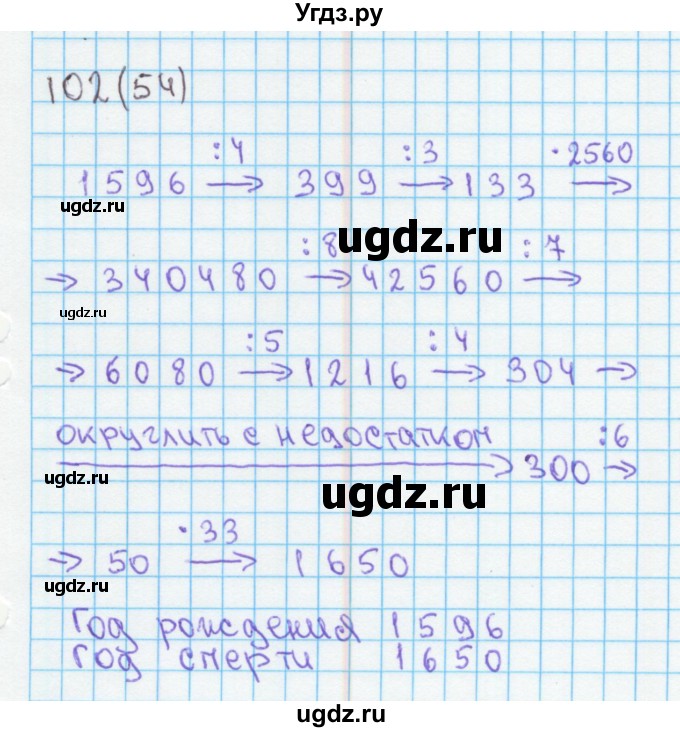 Угдз.ру
102(54)
:4 :3 ·2560
1596 → 399 → 133 →
ugdz.ru
ugdz.ru
:8 :7
→ 340480 → 42560 →
ugdz.ru
:5 :4
→ 6080 → 1216 → 304 →
округлить с недостатком :6
→ 300 →
ugdz.ru
ugdz.ru
·33
→ 50 → 1650
ugdz.ru
Год рождения 1596
ugdz.ru
Год смерти 1650
ugdz.ru